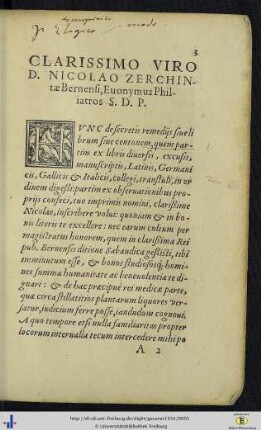 3
CLARISSIMO VIRO
D. NICOLAO ZERCHIN-
tæ Bernensi, Euonymus Phil-
iatros S. D. P.
HVNC de secretis remedijs siue li
brum siue centonem, quem par-
tim ex libris diuersis, excusis,
manuscriptis, Latinis, Germani
cis, Gallicis & Italicis, collegi, transtuli, in or
dinem digessi: partim ex obseruationibus pro-
prijs confeci, suo imprimis nomini, clarissime
Nicolae, inscribere volui: quoniam & in bo-
nis literis te excellere: nec earum cultum per
magistratus honorem, quem in clarissima Rei
pub. Bernensis ditione Sabaudica gessisti, tibi
imminutum esse, & bonos studiososq; homi-
nes summa humanitate ac beneuolentia te di-
gnari: & de hac præcipuè rei medicæ parte,
quæ circa stillatitios plantarum liquores ver-
satur, iudicium ferre posse, iandudum cognoui.
A quo tempore etsi nulla familiaritas propter
locorum interualla tecum intercedere mihi po
A 2
http://dl.ub.uni-freiburg.de/diglit/
© Universitätsbibliothek Freiburg